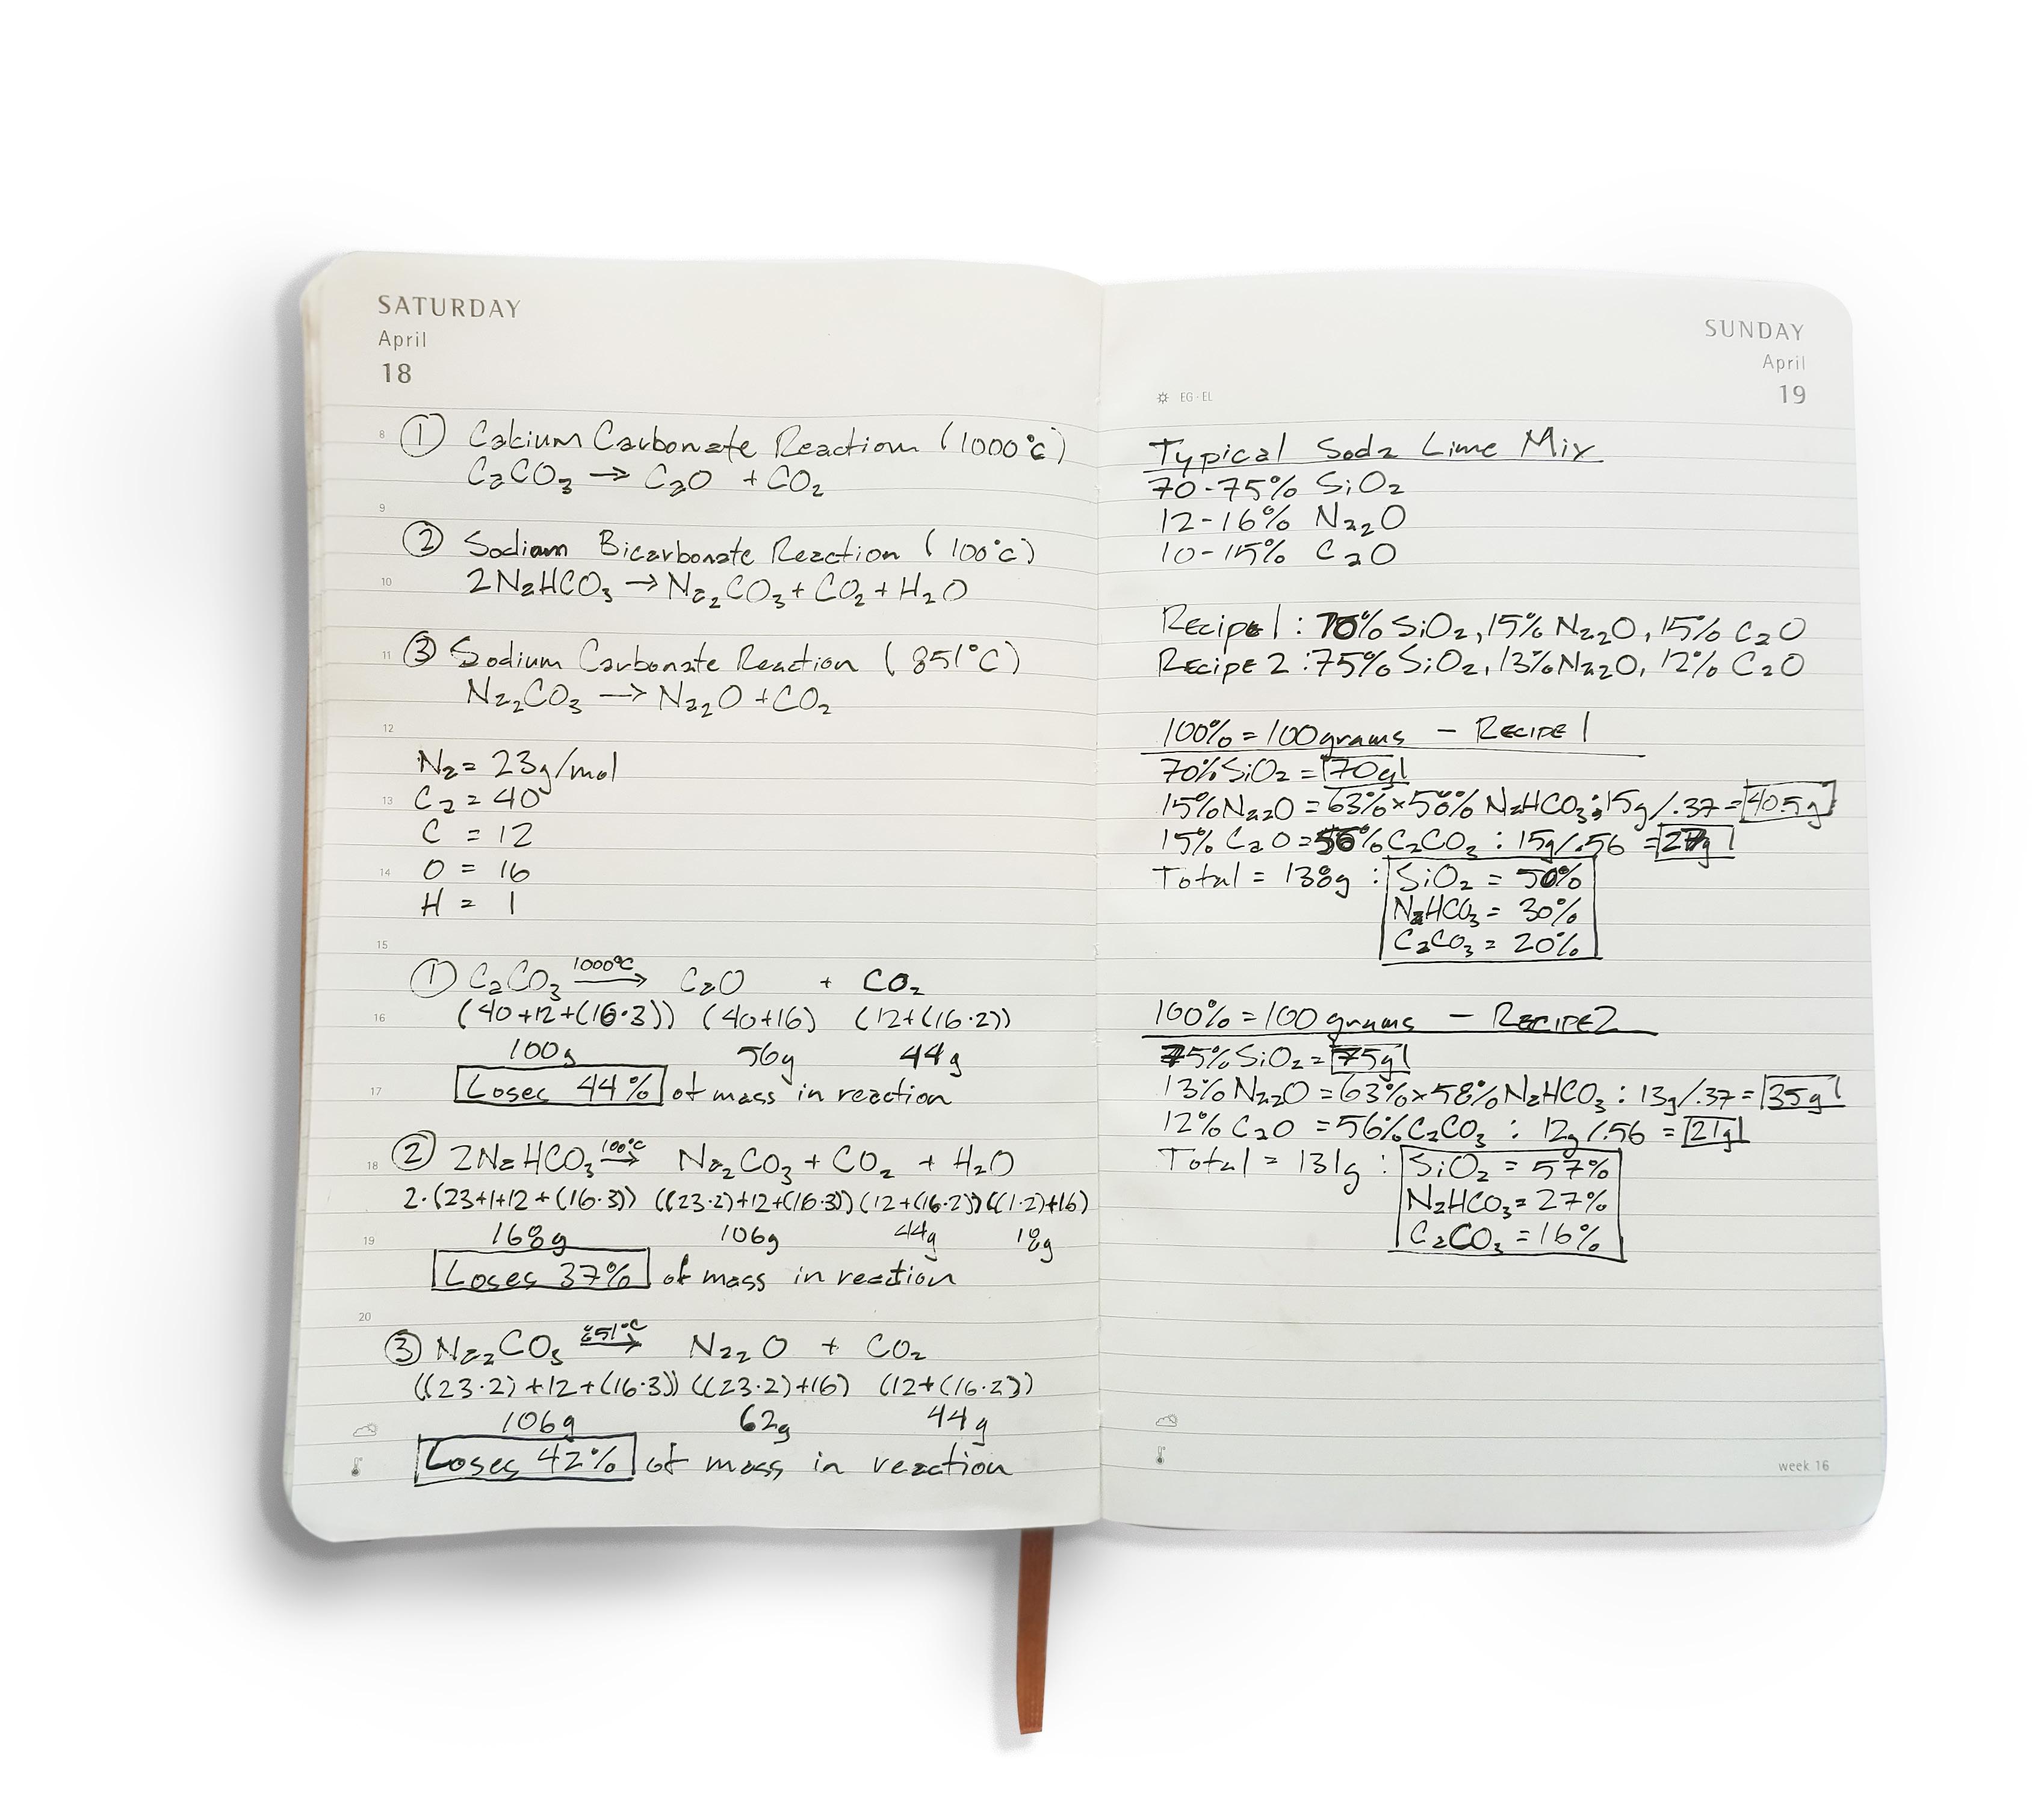 SATURDAY
April
18
8 ① Calcium Carbonate Reaction (1000°C)
CaCO₃ → CaO + CO₂
9
② Sodium Bicarbonate Reaction (100°C)
10 2NaHCO₃ → Na₂CO₃ + CO₂ + H₂O
11 ③ Sodium Carbonate Reaction (851°C)
Na₂CO₃ → Na₂O + CO₂
12
Na = 23g/mol
13 Ca = 40
C = 12
14 O = 16
H = 1
15
① CaCO₃ 1000°C → CaO + CO₂
16 (40+12+(16·3)) (40+16) (12+(16·2))
100g 56g 44g
17 Loses 44% of mass in reaction
18 ② 2NaHCO₃ 100°C → Na₂CO₃ + CO₂ + H₂O
2·(23+1+12+(16·3)) ((23·2)+12+(16·3)) (12+(16·2)) ((1·2)+16)
19 168g 106g 44g 18g
Loses 37% of mass in reaction
20
③ Na₂CO₃ 851°C → Na₂O + CO₂
((23·2)+12+(16·3)) ((23·2)+16) (12+(16·2))
106g 62g 44g
Loses 42% of mass in reaction
SUNDAY
April
19
EG - EL
Typical Soda Lime Mix
70-75% SiO₂
12-16% Na₂O
10-15% CaO
Recipe 1 : 70% SiO₂, 15% Na₂O, 15% CaO
Recipe 2 : 75% SiO₂, 13% Na₂O, 12% CaO
100% = 100 grams - Recipe 1
70% SiO₂ = 70g
15% Na₂O = 63% × 58% NaHCO₃ : 15g/.37 = 40.5g
15% CaO = 56% CaCO₃ : 15g/.56 = 27g
Total = 138g : SiO₂ = 50%
NaHCO₃ = 30%
CaCO₃ = 20%
100% = 100 grams - Recipe 2
75% SiO₂ = 75g
13% Na₂O = 63% × 58% NaHCO₃ : 13g/.37 = 35g
12% CaO = 56% CaCO₃ : 12g/.56 = 21g
Total = 131g : SiO₂ = 57%
NaHCO₃ = 27%
CaCO₃ = 16%
week 16